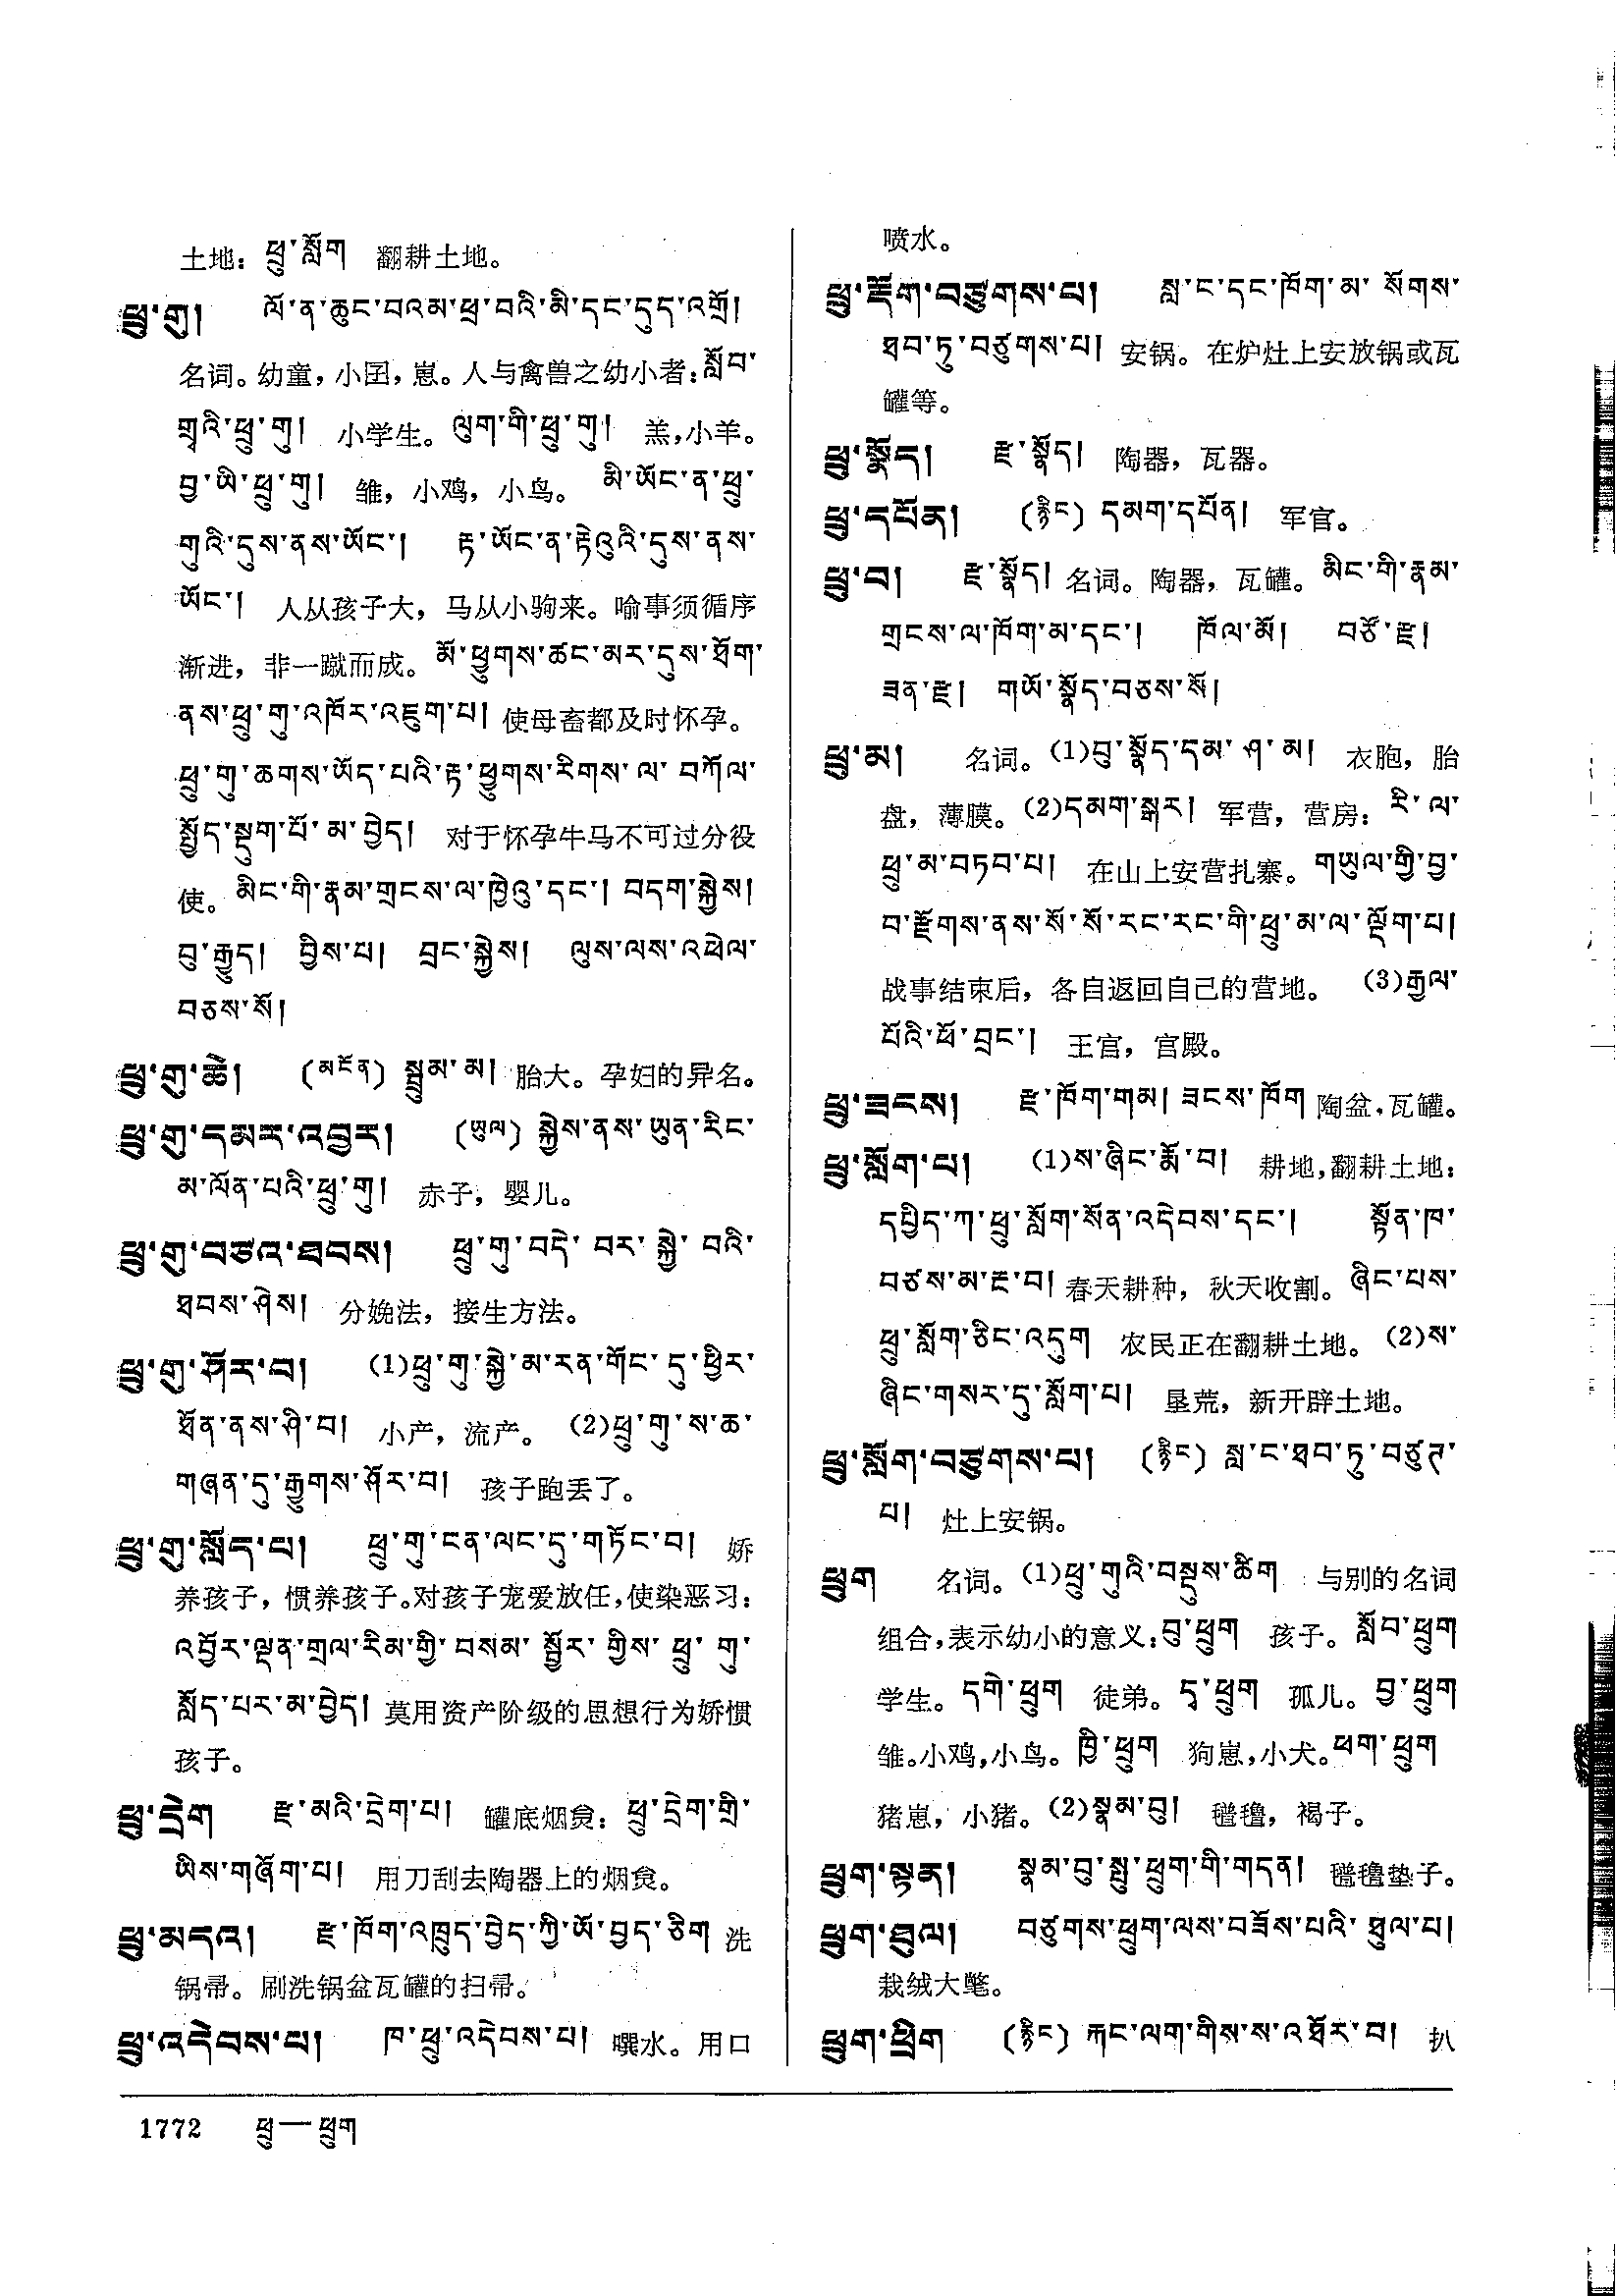 土地: ཕྲུ་སློག 翻耕土地。
ཕྲུ་གུ། ལོ་ན་ཆུང་བའམ་ཕྲ་བའི་མི་དང་དུད་འགྲོ།
名词。幼童，小囝，崽。人与禽兽之幼小者: སློབ་
གྲྭའི་ཕྲུ་གུ། 小学生。 ལུག་གི་ཕྲུ་གུ། 羔,小羊。
བྱ་ཡི་ཕྲུ་གུ། 雏，小鸡，小鸟。 མི་ཡོང་ན་ཕྲུ་
གུའི་དུས་ནས་ཡོང་། རྟ་ཡོང་ན་རྟེའུའི་དུས་ནས་
ཡོང་། 人从孩子大，马从小驹来。喻事须循序
渐进，非一蹴而成。 མོ་ཕྱུགས་ཚང་མར་དུས་ཐོག་
ནས་ཕྲུ་གུ་འཁོར་འཇུག་པ། 使母畜都及时怀孕。
ཕྲུ་གུ་ཆགས་ཡོད་པའི་རྟ་ཕྱུགས་རིགས་ལ་བཀོལ་
སྤྱོད་སྡུག་པོ་མ་བྱེད། 对于怀孕牛马不可过分役
使。 མིང་གི་རྣམ་གྲངས་ལ་ཁྱེའུ་དང་། བདག་སྐྱེས།
བུ་རྒྱུད། བྱིས་པ། བྲང་སྐྱེས། ལུས་ལས་འཕེལ་
བཅས་སོ།
ཕྲུ་གུ་ཆེ། (མངོན) སྦྲུམ་མ། 胎大。孕妇的异名。
ཕྲུ་གུ་དམར་འབྱར། (ཡུལ) སྐྱེས་ནས་ཡུན་རིང་
མ་ལོན་པའི་ཕྲུ་གུ། 赤子，婴儿。
ཕྲུ་གུ་བཙའ་ཐབས། ཕྲུ་གུ་བདེ་བར་སྐྱེ་བའི་
ཐབས་ཤེས། 分娩法，接生方法。
ཕྲུ་གུ་ཤོར་བ། (1)ཕྲུ་གུ་སྐྱེ་མ་རན་གོང་དུ་ཕྱིར་
ཐོན་ནས་ཤི་བ། 小产，流产。 (2)ཕྲུ་གུ་ས་ཆ་
གཞན་དུ་རྒྱུགས་ཤོར་བ། 孩子跑丢了。
ཕྲུ་གུ་སློད་པ། ཕྲུ་གུ་ངན་ལང་དུ་གཏོང་བ། 娇
养孩子，惯养孩子。对孩子宠爱放任,使染恶习:
འབྱོར་ལྡན་གྲལ་རིམ་གྱི་བསམ་སྦྱོར་གྱིས་ཕྲུ་གུ་
སློད་པར་མ་བྱེད། 莫用资产阶级的思想行为娇惯
孩子。
ཕྲུ་དྲེག རྫ་མའི་དྲེག་པ། 罐底烟炱: ཕྲུ་དྲེག་གྲི་
ཡིས་གཞོག་པ། 用刀刮去陶器上的烟炱。
ཕྲུ་མདའ། རྫ་ཁོག་འཁྲུད་བྱེད་ཀྱི་ཡོ་བྱད་ཅིག 洗
锅帚。刷洗锅盆瓦罐的扫帚。
ཕྲུ་འདེབས་པ། ཁ་ཕྲུ་འདེབས་པ། 噀水。用口
喷水。
ཕྲུ་རྔོག་བཙུགས་པ། སླ་ང་དང་ཁོག་མ་སོགས་
ཐབ་ཏུ་བཙུགས་པ། 安锅。在炉灶上安放锅或瓦
罐等。
ཕྲུ་སྣོད། རྫ་སྣོད། 陶器，瓦器。
ཕྲུ་དཔོན། (རྙིང) དམག་དཔོན། 军官。
ཕྲུ་བ། རྫ་སྣོད། 名词。陶器，瓦罐。 མིང་གི་རྣམ་
གྲངས་ལ་ཁོག་མ་དང་། ཁོལ་མོ། བཙོ་རྫ།
ཟན་རྫ། གཡོ་སྣོད་བཅས་སོ།
ཕྲུ་མ། 名词。(1)བུ་སྣོད་དམ་ཤ་མ། 衣胞，胎
盘，薄膜。(2)དམག་སྒར། 军营，营房: རི་ལ་
ཕྲུ་མ་བཏབ་པ། 在山上安营扎寨。 གཡུལ་གྱི་བྱ་
བ་རྫོགས་ནས་སོ་སོ་རང་རང་གི་ཕྲུ་མ་ལ་ལྡོག་པ།
战事结束后，各自返回自己的营地。 (3)རྒྱལ་
པོའི་ཕོ་བྲང་། 王宫，宫殿。
ཕྲུ་ཟངས། རྫ་ཁོག་གམ། ཟངས་ཁོག 陶盆,瓦罐。
ཕྲུ་སློག་པ། (1)ས་ཞིང་རྨོ་བ། 耕地,翻耕土地:
དཔྱིད་ཀ་ཕྲུ་སློག་སོན་འདེབས་དང་། སྟོན་ཁ་
བཙས་མ་རྔ་བ། 春天耕种，秋天收割。 ཞིང་པས་
ཕྲུ་སློག་ཅིང་འདུག 农民正在翻耕土地。 (2)ས་
ཞིང་གསར་དུ་སློག་པ། 垦荒，新开辟土地。
ཕྲུ་སློག་བཙུགས་པ། (རྙིང) སླ་ང་ཐབ་ཏུ་བཙུད་
པ། 灶上安锅。
ཕྲུག 名词。(1)ཕྲུ་གུའི་བསྡུས་ཚིག 与别的名词
组合,表示幼小的意义: བུ་ཕྲུག 孩子。 སློབ་ཕྲུག
学生。 དགེ་ཕྲུག 徒弟。 དྭ་ཕྲུག 孤儿。 བྱ་ཕྲུག
雏。小鸡,小鸟。 ཁྱི་ཕྲུག 狗崽,小犬。 ཕག་ཕྲུག
猪崽，小猪。(2)སྣམ་བུ། 氆氇，褐子。
ཕྲུག་སྟན། སྣམ་བུ་སྤུ་ཕྲུག་གི་གདན། 氆氇垫子。
ཕྲུག་ཐུལ། བཙུགས་ཕྲུག་ལས་བཟོས་པའི་ཐུལ་པ།
栽绒大氅。
ཕྲུག་ཕྲིག (རྙིང) རྐང་ལག་གིས་ས་འཐོར་བ། 扒
1772 ཕྲུ—ཕྲུག